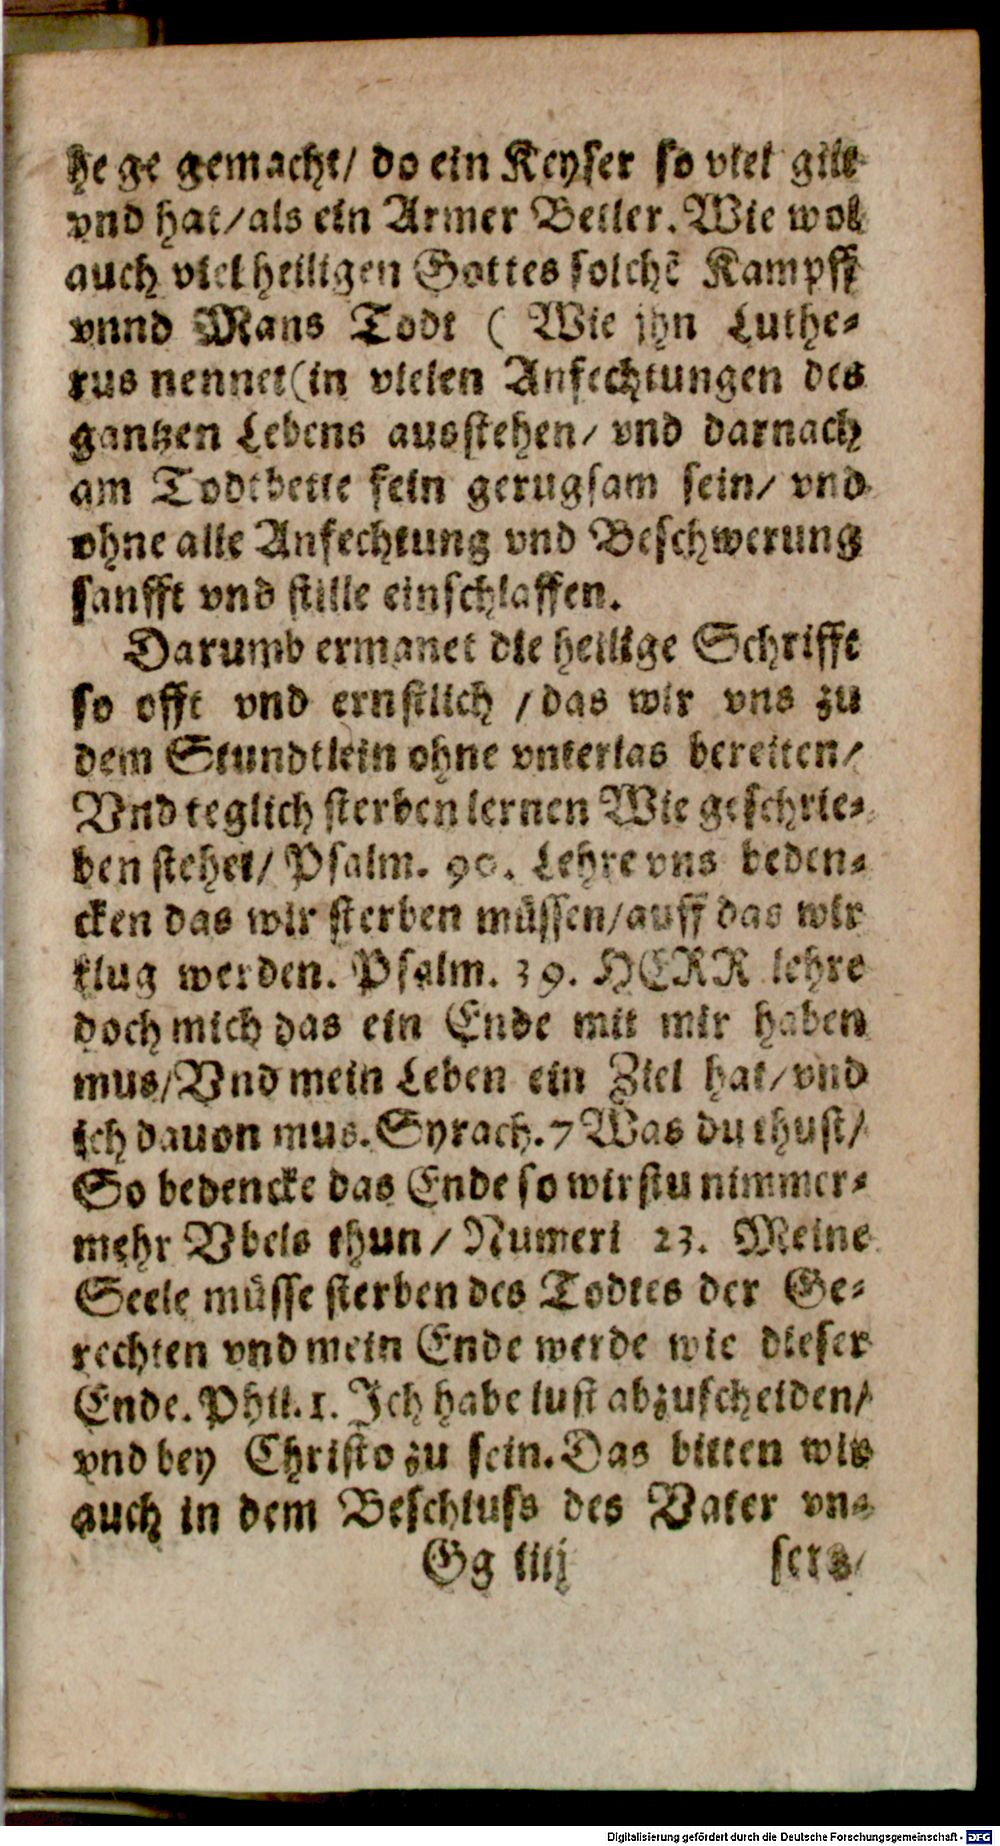 he ge gemacht/ do ein Keyser so viel gilt
vnd hat/als ein Armer Betler. Wie wol
auch viel heiligen Gottes solchē Kampff
vnnd Mans Todt ( Wie jhn Luthe-
rus nennet(in vielen Anfechtungen des
gantzen Lebens ausstehen/ vnd darnach
am Todtbette fein gerugsam sein/ vnd
ohne alle Anfechtung vnd Beschwerung
sanfft vnd stille einschlaffen.
Darumb ermanet die heilige Schrifft
so offt vnd ernstlich /das wir vns zu
dem Stundtlein ohne vnterlas bereiten/
Vnd teglich sterben lernen Wie geschrie-
ben stehet/ Psalm. 90. Lehre vns beden-
cken das wir sterben müssen/auff das wir
klug werden. Psalm. 39. HERR lehre
doch mich das ein Ende mit mir haben
mus/Vnd mein Leben ein Ziel hat/vnd
ich dauon mus. Syrach. 7 Was du thust/
So bedencke das Ende so wirstu nimmer-
mehr Vbels thun / Numeri 23. Meine
Seele müsse sterben des Todtes der Ge-
rechten vnd mein Ende werde wie dieser
Ende. Phil. 1. Ich habe lust abzuscheiden/
vnd bey Christo zu sein. Das bitten wir
auch in dem Beschluss des Vater vn-
Gg iiij sers/
Digitalisierung gefördert durch die Deutsche Forschungsgemeinschaft - DFG